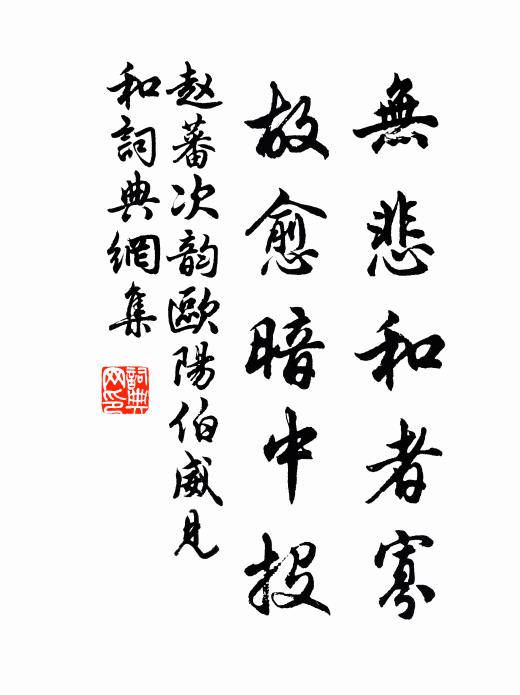 無悲和者寡
故愈暗中投
赵蕃次韵歐陽伯威見
和詞典網集
詞典网印